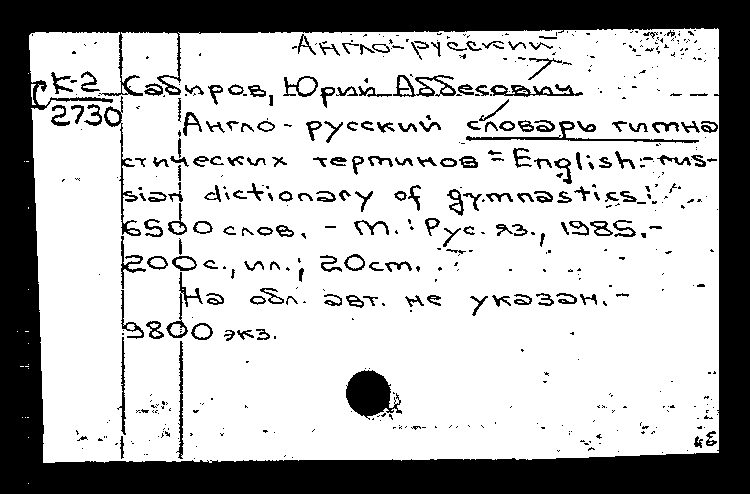 Англо-русский
К-2
2730
Сабиров, Юрий Аббесович.
Англо-русский словарь гимна
стических терминов = English-rus-
sian dictionary of gymnastics:
6500 слов. - М.: Рус. яз., 1985.-
200с., ил.; 20см.
На обл. авт. не указан.-
9800 экз.